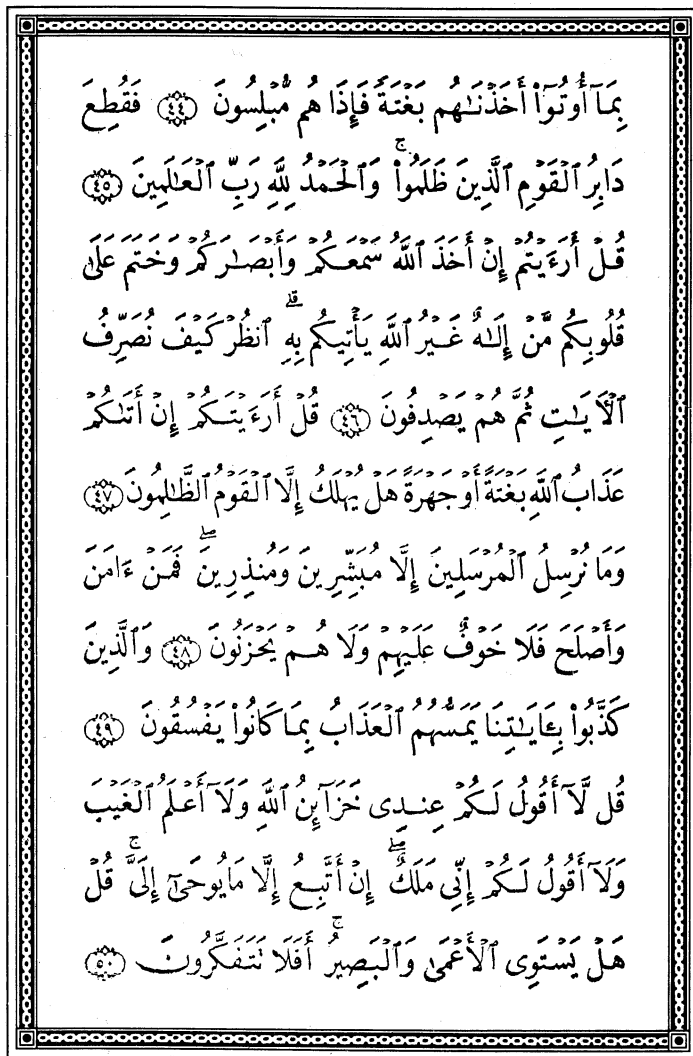 بِمَآ أُوتُوٓا۟ أَخَذْنَـٰهُم بَغْتَةً فَإِذَا هُم مُّبْلِسُونَ ﴿٤٤﴾ فَقُطِعَ
دَابِرُ ٱلْقَوْمِ ٱلَّذِينَ ظَلَمُوا۟ ۚ وَٱلْحَمْدُ لِلَّهِ رَبِّ ٱلْعَـٰلَمِينَ ﴿٤٥﴾
قُلْ أَرَءَيْتُمْ إِنْ أَخَذَ ٱللَّهُ سَمْعَكُمْ وَأَبْصَـٰرَكُمْ وَخَتَمَ عَلَىٰ
قُلُوبِكُم مَّنْ إِلَـٰهٌ غَيْرُ ٱللَّهِ يَأْتِيكُم بِهِ ۗ ٱنظُرْ كَيْفَ نُصَرِّفُ
ٱلْـَٔايَـٰتِ ثُمَّ هُمْ يَصْدِفُونَ ﴿٤٦﴾ قُلْ أَرَءَيْتَكُمْ إِنْ أَتَىٰكُمْ
عَذَابُ ٱللَّهِ بَغْتَةً أَوْ جَهْرَةً هَلْ يُهْلَكُ إِلَّا ٱلْقَوْمُ ٱلظَّـٰلِمُونَ ﴿٤٧﴾
وَمَا نُرْسِلُ ٱلْمُرْسَلِينَ إِلَّا مُبَشِّرِينَ وَمُنذِرِينَ ۖ فَمَنْ ءَامَنَ
وَأَصْلَحَ فَلَا خَوْفٌ عَلَيْهِمْ وَلَا هُمْ يَحْزَنُونَ ﴿٤٨﴾ وَٱلَّذِينَ
كَذَّبُوا۟ بِـَٔايَـٰتِنَا يَمَسُّهُمُ ٱلْعَذَابُ بِمَا كَانُوا۟ يَفْسُقُونَ ﴿٤٩﴾
قُل لَّآ أَقُولُ لَكُمْ عِندِى خَزَآئِنُ ٱللَّهِ وَلَآ أَعْلَمُ ٱلْغَيْبَ
وَلَآ أَقُولُ لَكُمْ إِنِّى مَلَكٌ ۖ إِنْ أَتَّبِعُ إِلَّا مَا يُوحَىٰٓ إِلَىَّ ۚ قُلْ
هَلْ يَسْتَوِى ٱلْأَعْمَىٰ وَٱلْبَصِيرُ ۚ أَفَلَا تَتَفَكَّرُونَ ﴿٥٠﴾